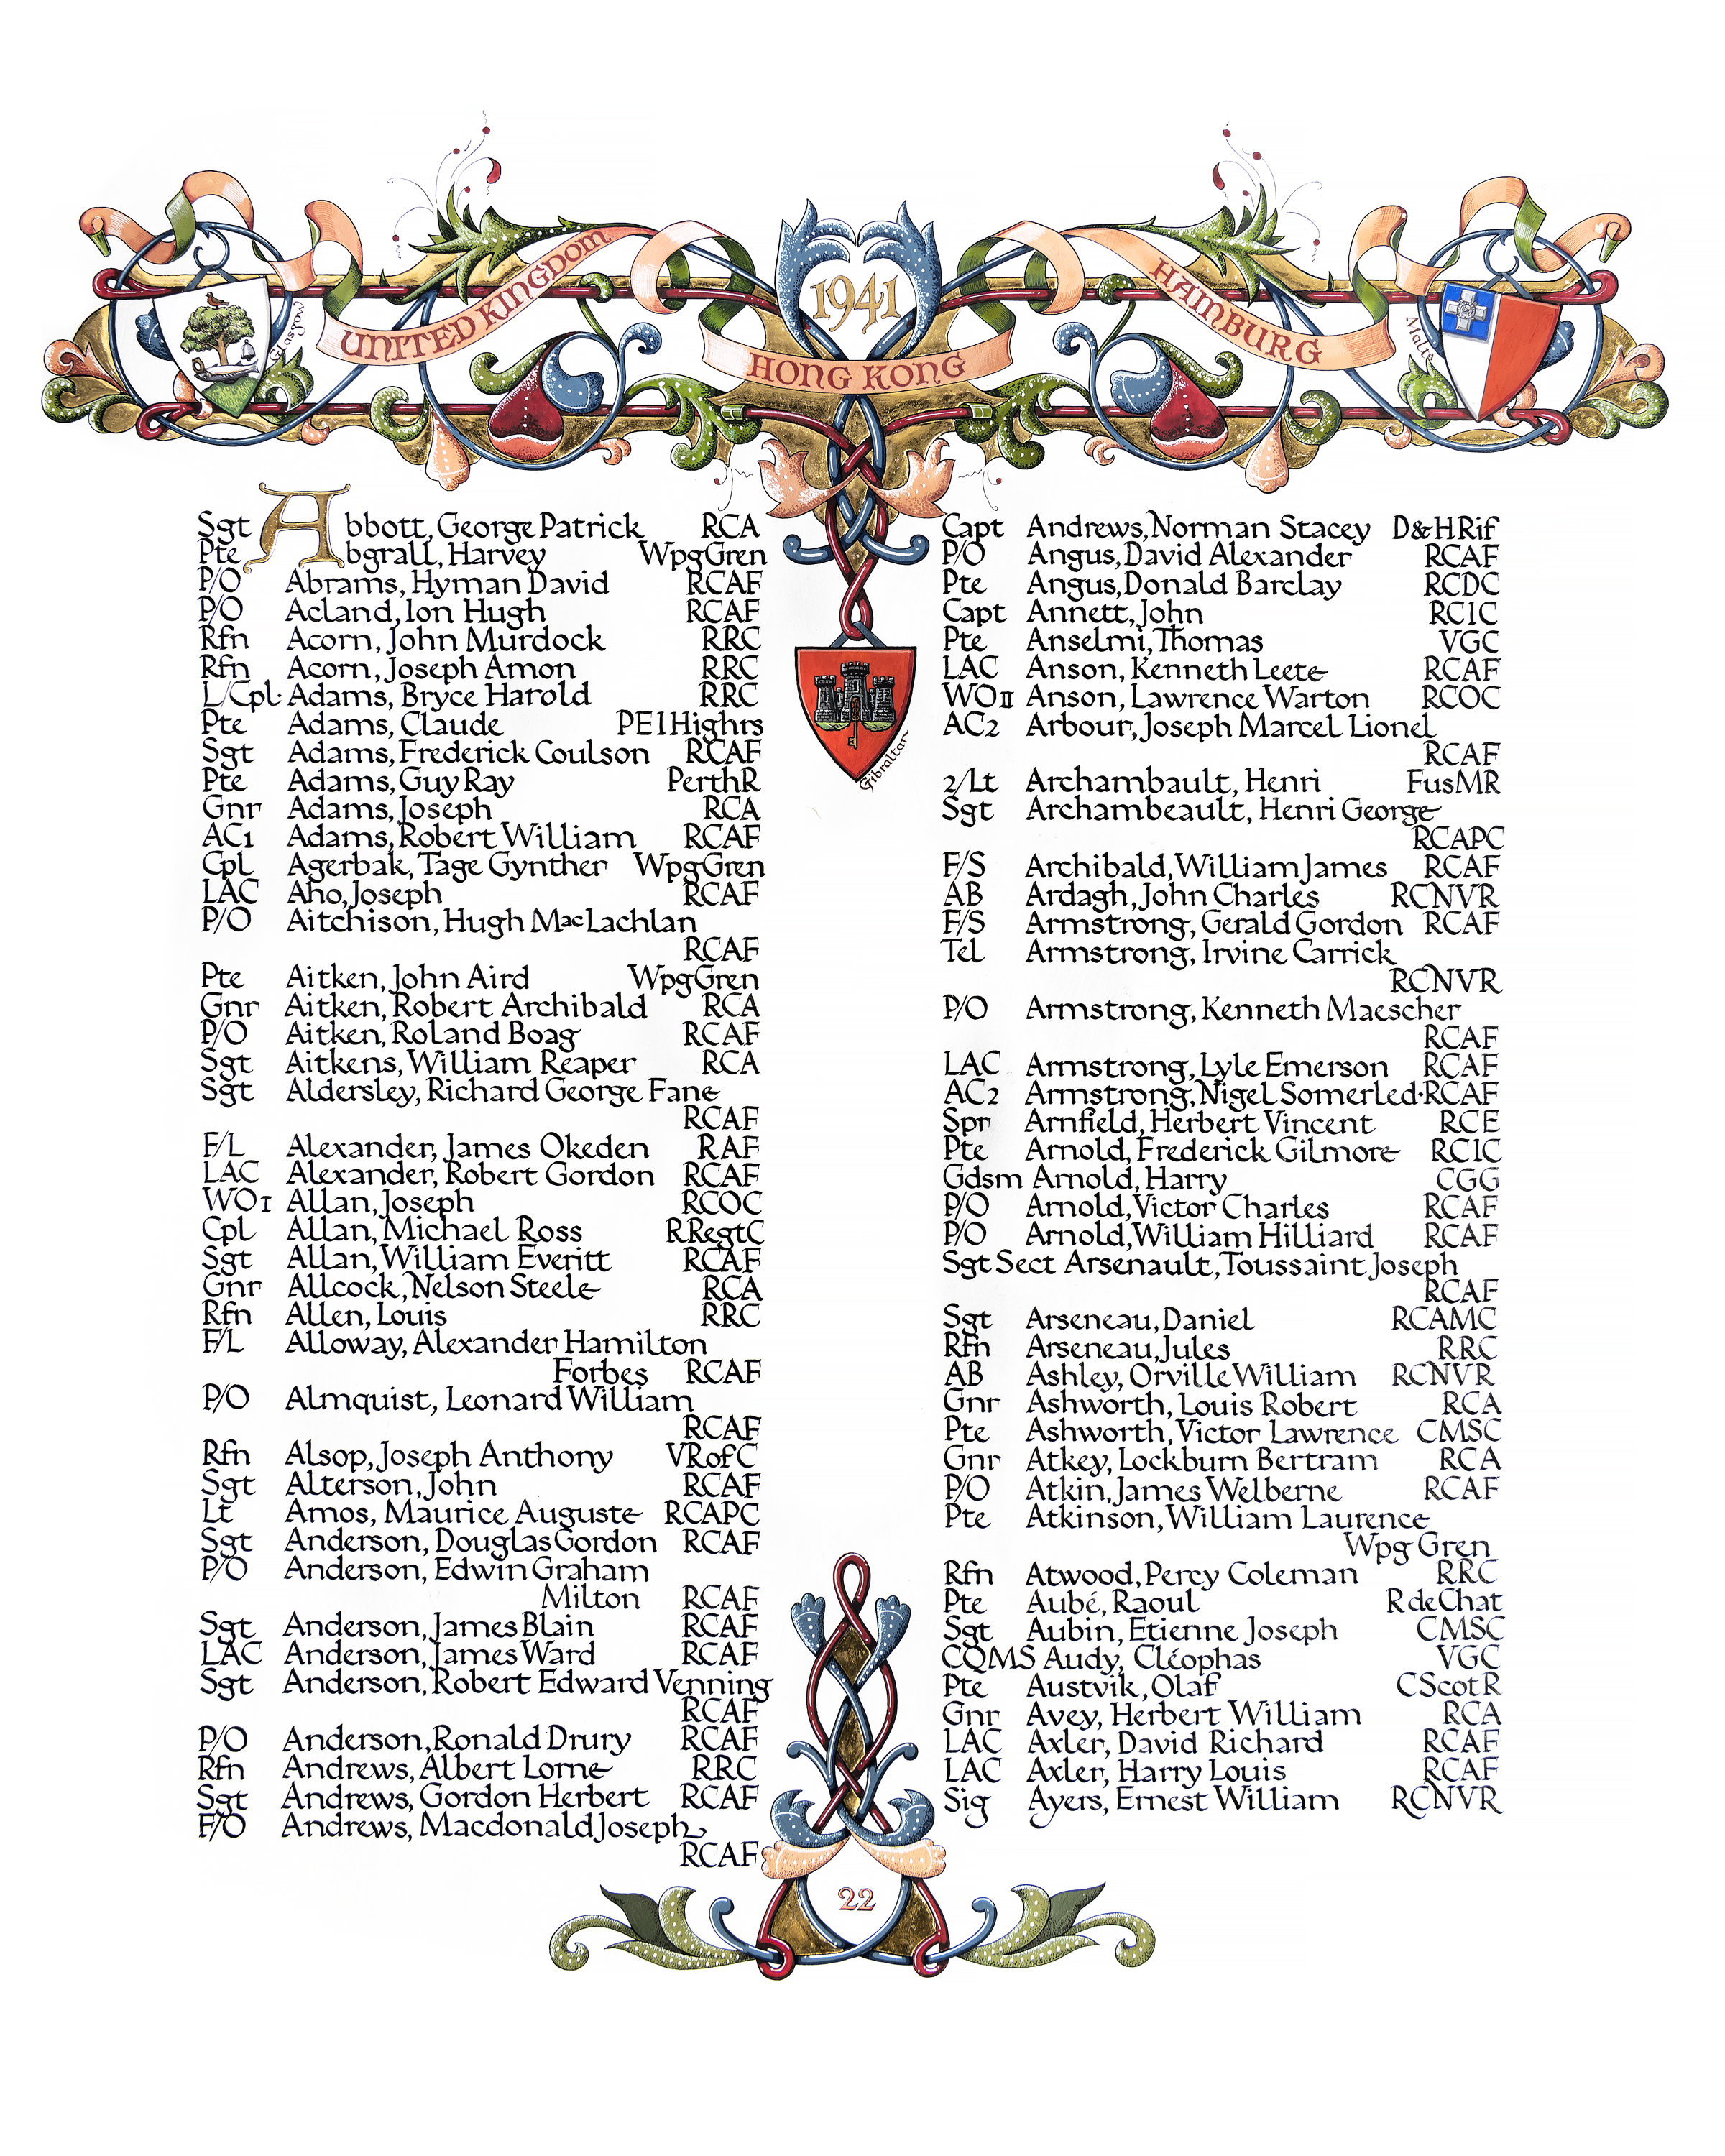 1941
UNITED KINGDOM
HONG KONG
HAMBURG
Glasgow
Malte
Gibraltar
Sgt Abbott, George Patrick RCA
Pte Abgrall, Harvey WpgGren
P/O Abrams, Hyman David RCAF
P/O Acland, Ion Hugh RCAF
Rfn Acorn, John Murdock RRC
Rfn Acorn, Joseph Amon RRC
L/Cpl Adams, Bryce Harold RRC
Pte Adams, Claude PEIHighrs
Sgt Adams, Frederick Coulson RCAF
Pte Adams, Guy Ray PerthR
Gnr Adams, Joseph RCA
AC1 Adams, Robert William RCAF
Cpl Agerbak, Tage Gynther WpgGren
LAC Aho, Joseph RCAF
P/O Aitchison, Hugh MacLachlan
RCAF
Pte Aitken, John Aird WpgGren
Gnr Aitken, Robert Archibald RCA
P/O Aitken, Roland Boag RCAF
Sgt Aitkens, William Reaper RCA
Sgt Aldersley, Richard George Fane
RCAF
F/L Alexander, James Okeden RAF
LAC Alexander, Robert Gordon RCAF
WO1 Allan, Joseph RCOC
Cpl Allan, Michael Ross RRegtC
Sgt Allan, William Everitt RCAF
Gnr Allcock, Nelson Steele RCA
Rfn Allen, Louis RRC
F/L Alloway, Alexander Hamilton
Forbes RCAF
P/O Almquist, Leonard William
RCAF
Rfn Alsop, Joseph Anthony VRofC
Sgt Alterson, John RCAF
Lt Amos, Maurice Auguste RCAPC
Sgt Anderson, Douglas Gordon RCAF
P/O Anderson, Edwin Graham
Milton RCAF
Sgt Anderson, James Blain RCAF
LAC Anderson, James Ward RCAF
Sgt Anderson, Robert Edward Venning
RCAF
P/O Anderson, Ronald Drury RCAF
Rfn Andrews, Albert Lorne RRC
Sgt Andrews, Gordon Herbert RCAF
F/O Andrews, Macdonald Joseph
RCAF
Capt Andrews, Norman Stacey D&HRif
P/O Angus, David Alexander RCAF
Pte Angus, Donald Barclay RCDC
Capt Annett, John RCIC
Pte Anselmi, Thomas VGC
LAC Anson, Kenneth Leete RCAF
WOII Anson, Lawrence Warton RCOC
AC2 Arbour, Joseph Marcel Lionel
RCAF
2/Lt Archambault, Henri FusMR
Sgt Archambeault, Henri George
RCAPC
F/S Archibald, William James RCAF
AB Ardagh, John Charles RCNVR
F/S Armstrong, Gerald Gordon RCAF
Tel Armstrong, Irvine Carrick
RCNVR
P/O Armstrong, Kenneth Maescher
RCAF
LAC Armstrong, Lyle Emerson RCAF
AC2 Armstrong, Nigel Somerled·RCAF
Spr Arnfield, Herbert Vincent RCE
Pte Arnold, Frederick Gilmore RCIC
Gdsm Arnold, Harry CGG
P/O Arnold, Victor Charles RCAF
P/O Arnold, William Hilliard RCAF
Sgt Sect Arsenault, Toussaint Joseph
RCAF
Sgt Arseneau, Daniel RCAMC
Rfn Arseneau, Jules RRC
AB Ashley, Orville William RCNVR
Gnr Ashworth, Louis Robert RCA
Pte Ashworth, Victor Lawrence CMSC
Gnr Atkey, Lockburn Bertram RCA
P/O Atkin, James Welberne RCAF
Pte Atkinson, William Laurence
Wpg Gren
Rfn Atwood, Percy Coleman RRC
Pte Aubé, Raoul RdeChat
Sgt Aubin, Etienne Joseph CMSC
CQMS Audy, Cléophas VGC
Pte Austvik, Olaf CScotR
Gnr Avey, Herbert William RCA
LAC Axler, David Richard RCAF
LAC Axler, Harry Louis RCAF
Sig Ayers, Ernest William RCNVR
22